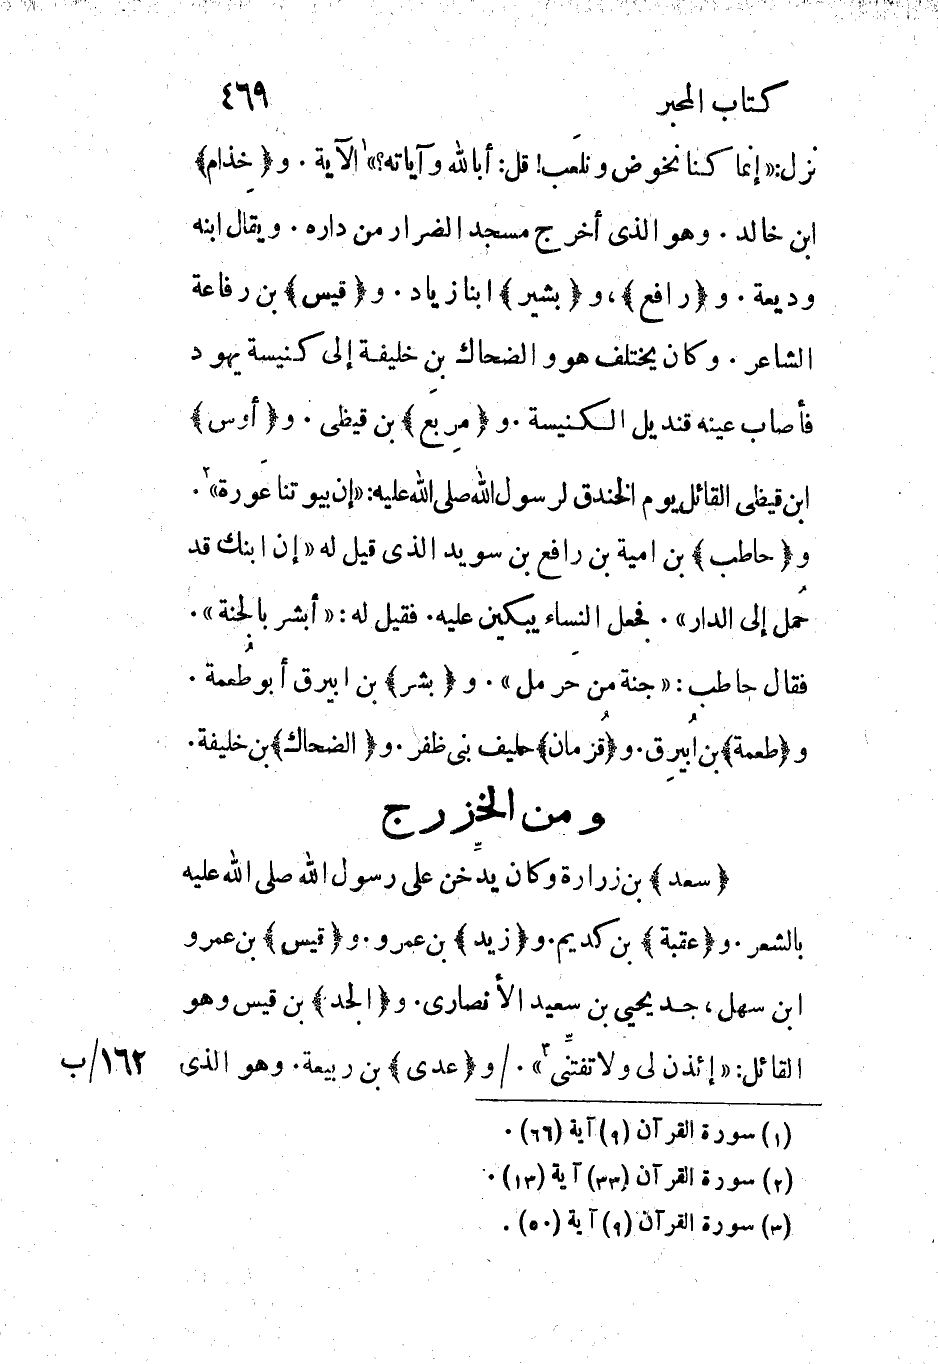 كتاب المحبر ٤٦٩
نزل: «إنما كنا نخوض ونلعب! قل: أبالله وآياته؟»١ الآية . و ﴿خِذام﴾
ابن خالد . وهو الذى أخرج مسجد الضرار من داره . ويقال ابنه
وديعة . و ﴿رافع﴾، و ﴿بشير﴾ ابنا زياد . و ﴿قيس﴾ بن رفاعة
الشاعر . وكان يختلف هو والضحاك بن خليفة إلى كنيسة يهود
فأصاب عينه قنديل الكنيسة . و ﴿مِربَع﴾ بن قيظى . و ﴿أوس﴾
ابن قيظى القائل يوم الخندق لرسول الله صلى الله عليه: «إن بيوتنا عَورة»٢ .
و ﴿حاطب﴾ بن امية بن رافع بن سويد الذى قيل له «إن ابنك قد
حُمل إلى الدار» . فجعل النساء يبكين عليه . فقيل له: «أبشر بالجنة» .
فقال حاطب: «جنة من حَرمل» . و ﴿بشر﴾ بن ابيرق أبو طُعمة .
و ﴿طعمة﴾ بن اُبيرِق . و ﴿قُزمان﴾ حليف بنى ظفر . و ﴿الضحاك﴾ بن خليفة .
ومن الخزرج
﴿سعد﴾ بن زرارة وكان يدخّن على رسول الله صلى الله عليه
بالشعر . و ﴿عقبة﴾ بن كديم . و ﴿زيد﴾ بن عمرو . و ﴿قيس﴾ بن عمرو
ابن سهل، جد يحيي بن سعيد الأنصارى . و ﴿الجد﴾ بن قيس وهو
القائل: «إئذن لى ولا تفتنّى»٣ . / و ﴿عدى﴾ بن ربيعة . وهو الذى ١٦٢/ب
(١) سورة القرآن (٩) آية (٦٦) .
(٢) سورة القرآن (٣٣) آية (١٣) .
(٣) سورة القرآن (٩) آية (٥٠) .